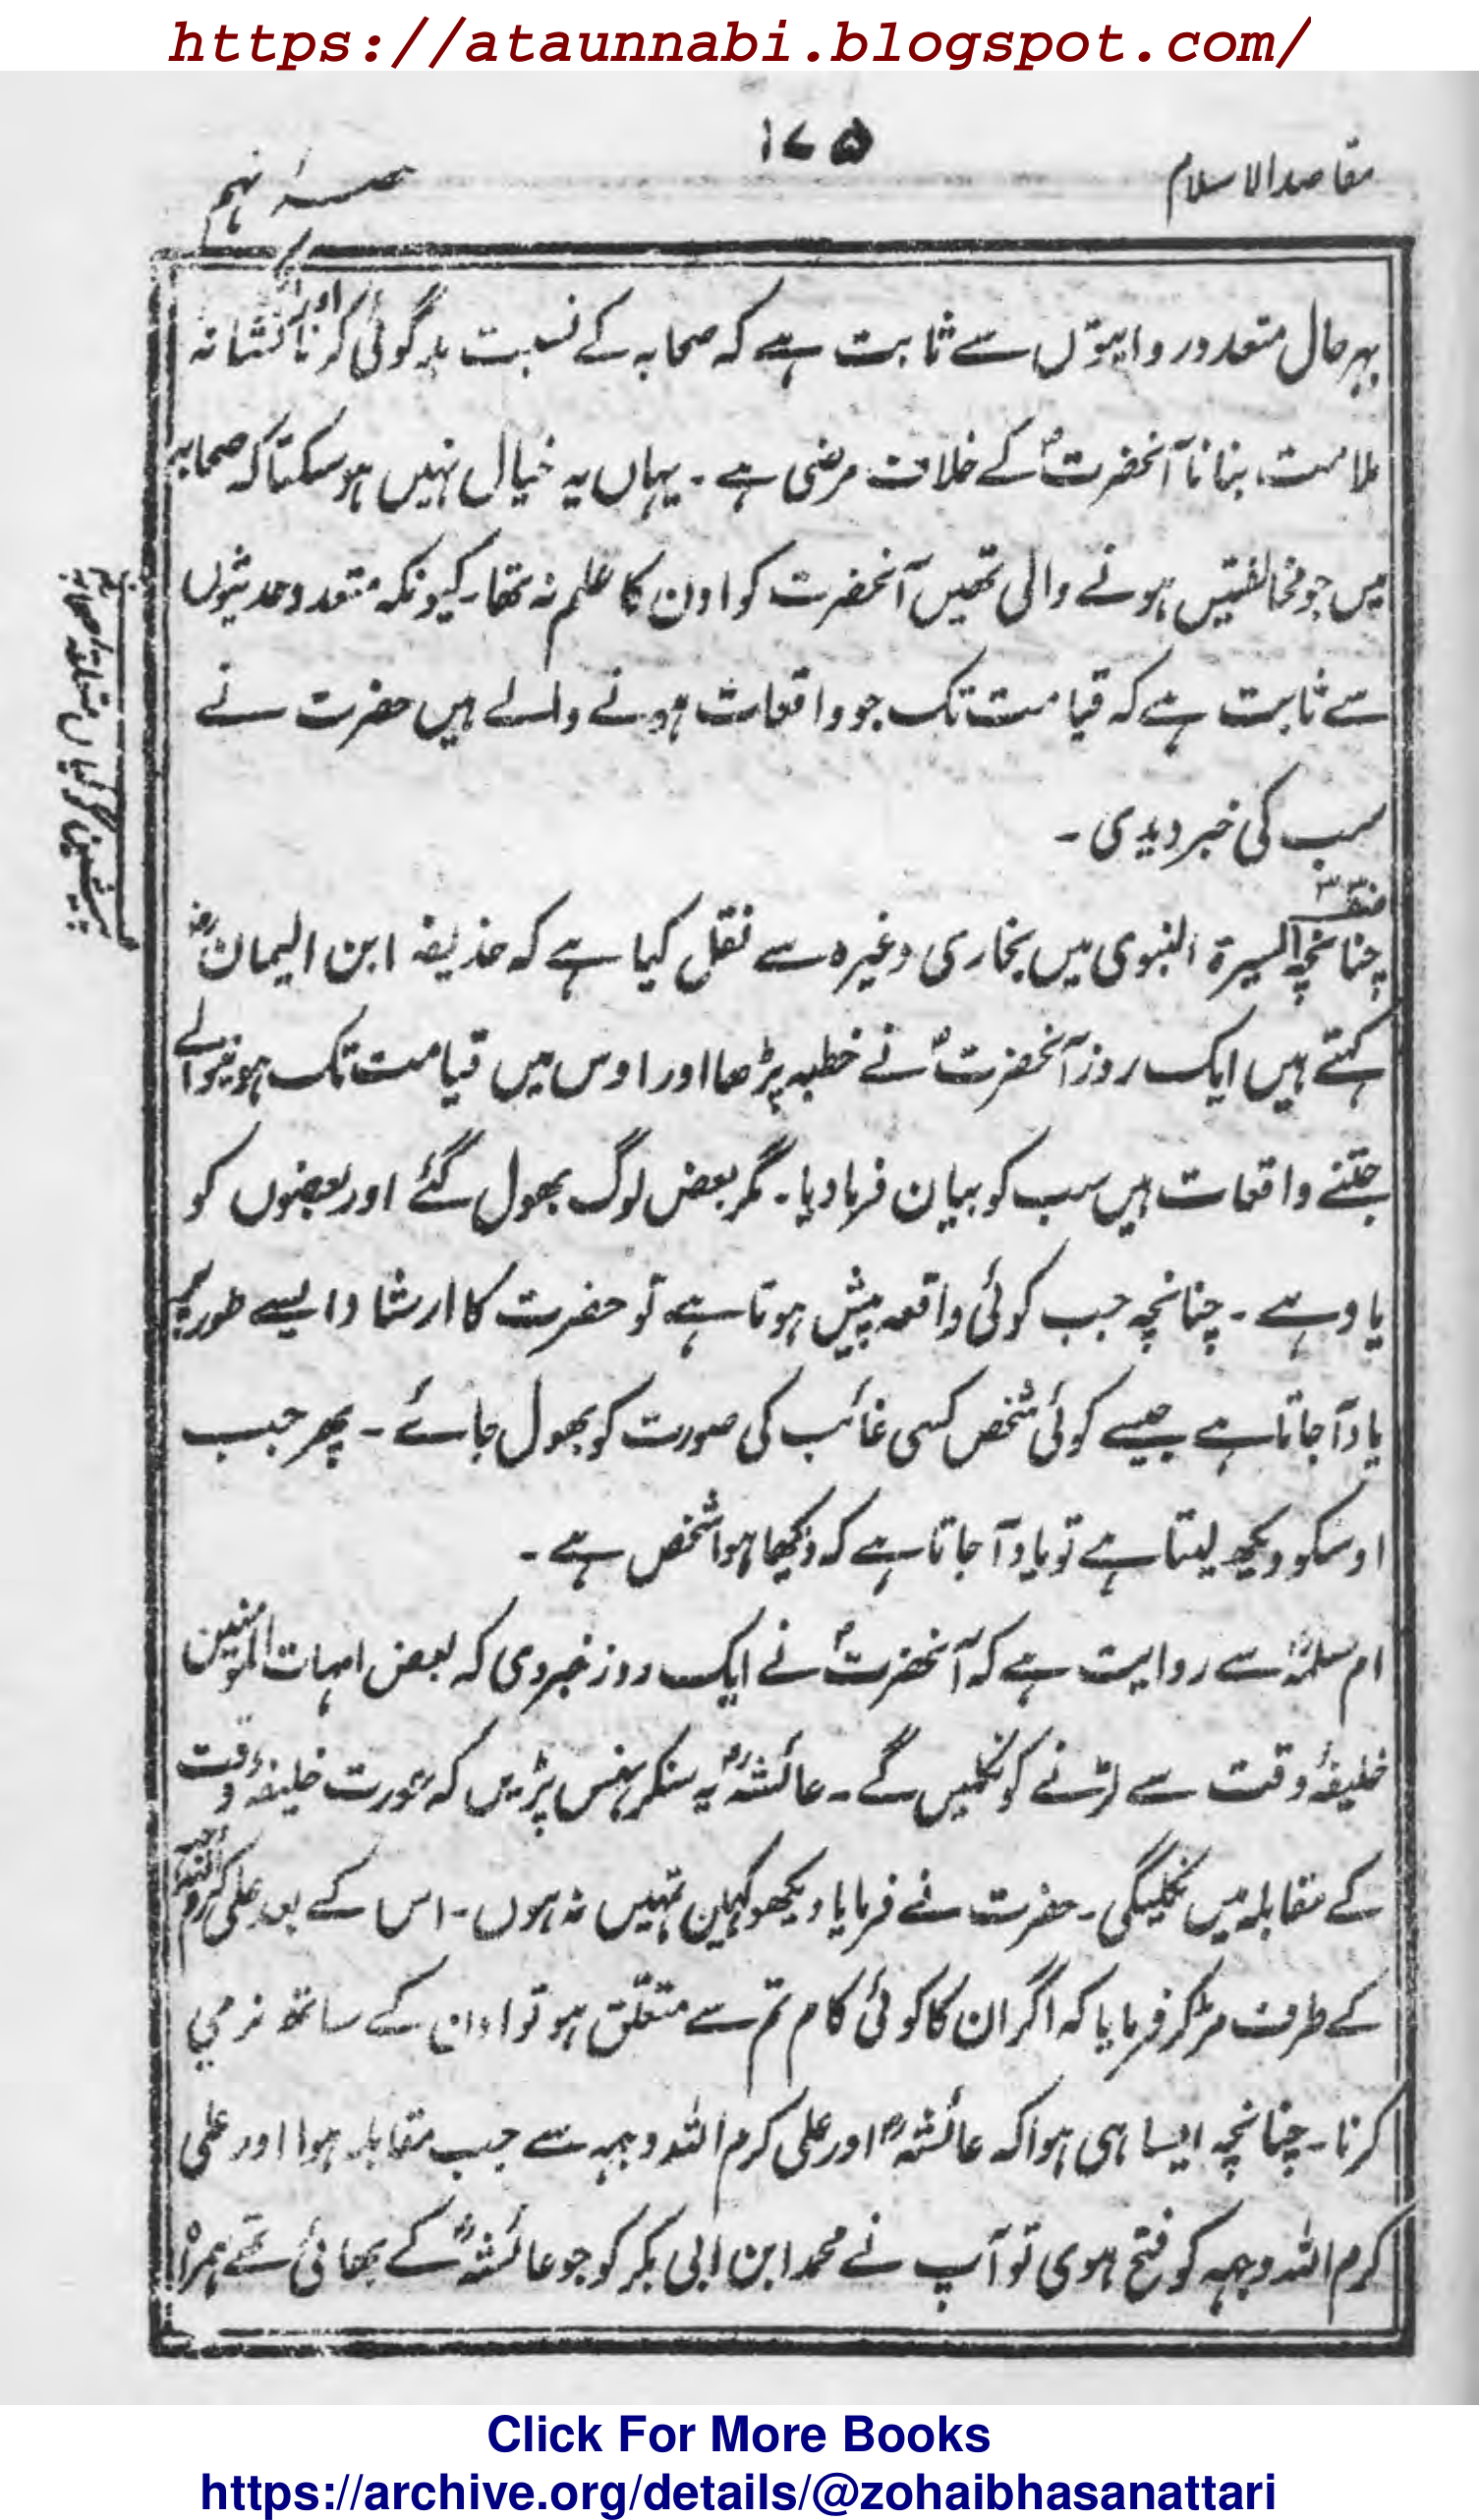 https://ataunnabi.blogspot.com/
۱۷۵
مقاصد الاسلام
حصہ نہم
بہر حال متعدد روایتوں سے ثابت ہے کہ صحابہ کے نسبت بدگوئی کرنا اور انکو نشانہ
ملامت بنانا آنحضرتؐ کے خلاف مرضی ہے ۔ یہاں یہ خیال نہیں ہوسکتا کہ صحابہ
میں جو مخالفتیں ہونے والی تھیں آنحضرت کو اون کا علم نہ تھا۔ کیونکہ متعدد حدیثوں
سے ثابت ہے کہ قیامت تک جو واقعات ہونے والے ہیں حضرت نے
سب کی خبر دیدی ۔
چنانچہ السیرۃ النبوی میں بخاری وغیرہ سے نقل کیا ہے کہ حذیفہ ابن الیمانؓ
کہتے ہیں ایک روز آنحضرتؐ نے خطبہ پڑھا اور اوس میں قیامت تک ہونیوالے
جتنے واقعات ہیں سب کو بیان فرما دیا۔ مگر بعض لوگ بھول گئے اور بعضوں کو
یاد ہے ۔ چنانچہ جب کوئی واقعہ پیش ہوتا ہے تو حضرت کا ارشاد ایسے طور پر
یاد آجاتا ہے جیسے کوئی شخص کسی غائب کی صورت کو بھول جائے ۔ پھر جب
اوسکو دیکھ لیتا ہے تو یاد آجاتا ہے کہ دیکھا ہوا شخص ہے ۔
ام سلمہؓ سے روایت ہے کہ آنحضرتؐ نے ایک روز خبر دی کہ بعض امہات المومنین
خلیفۂ وقت سے لڑنے کو نکلیں گے ۔ عائشہؓ یہ سنکر ہنس پڑیں کہ عورت خلیفۂ وقت
کے مقابلہ میں نکلیگی ۔ حضرت نے فرمایا دیکھو کہیں تمہیں نہ ہوں ۔ اس کے بعد علی کرم اللہ وجہہ
کے طرف مڑکر فرمایا کہ اگر ان کا کوئی کام تم سے متعلق ہو تو اون کے ساتھ نرمی
کرنا ۔ چنانچہ ایسا ہی ہوا کہ عائشہؓ اور علی کرم اللہ وجہہ سے جب مقابلہ ہوا اور علی
کرم اللہ وجہہ کو فتح ہوی تو آپ نے محمد ابن ابی بکر کو جو عائشہؓ کے بھائی تھے ہمراہ
Click For More Books
https://archive.org/details/@zohaibhasanattari